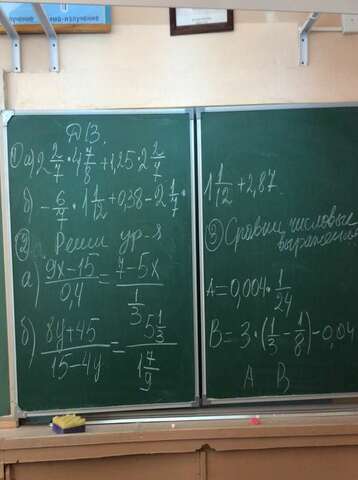 лучение има-излучение
ДЗ.
① а) 2 2/7 · 4 7/8 + 1,25 · 2 2/7
б) - 6/7 · 1 1/12 + 0,38 - 2 1/7 · 1 1/12 + 2,87
② Реши ур-я
а) (9x-15)/0,4 = (7-5x)/(1/3)
б) (8y+45)/(15-4y) = (5 1/3)/(1 7/9)
③ Сравни числовые
выражения
A = 0,004 · 1/24
B = 3 · (1/3 - 1/8) - 0,04
A B